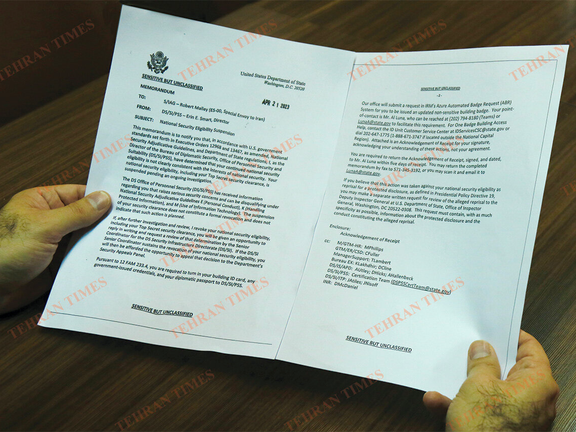 TEHRAN TIMES
SENSITIVE BUT UNCLASSIFIED
United States Department of State
Washington, D.C. 20520
MEMORANDUM
APR 21 2023
TO: S/IAG – Robert Malley (ES-00, Special Envoy to Iran)
FROM: DS/SI/PSS – Erin E. Smart, Director
SUBJECT: National Security Eligibility Suspension
This memorandum is to notify you that, in accordance with U.S. government
standards set forth in Executive Orders 12968 and 13467, as amended, National
Security Adjudicative Guidelines, and Department of State regulations, the
Director of the Bureau of Diplomatic Security, Office of Personnel Security and
Suitability (DS/SI/PSS), have determined that your continued national security
eligibility is not clearly consistent with the interests of national security. Your
national security eligibility, including your Top Secret security clearance, is
suspended pending an ongoing investigation.
The DS Office of Personnel Security (DS/SI/PSS) has received information
regarding you that raises serious security concerns and can be disqualifying under
National Security Adjudicative Guidelines E (Personal Conduct), K (Handling
Protected Information), and M (Use of Information Technology). The suspension
of your security clearance does not constitute a formal revocation and does not
indicate that such action is planned.
If, after further investigation and review, I revoke your national security eligibility,
including your Top Secret security clearance, you will be given an opportunity to
reply in writing and request a review of that determination by the Senior
Coordinator for the DS Security Infrastructure Directorate (DS/SI). If the DS/SI
Senior Coordinator sustains the revocation of your national security eligibility, you
will then be afforded an opportunity to appeal that decision to the Department's
Security Appeals Panel.
Pursuant to 12 FAM 233.4, you are required to turn in your building ID card, any
government-issued credentials, and your diplomatic passport to DS/SI/PSS.
SENSITIVE BUT UNCLASSIFIED
SENSITIVE BUT UNCLASSIFIED
-2-
Our office will submit a request in IRM's Azure Automated Badge Request (ABR)
System for you to be issued an updated non-sensitive building badge. Your point-
of-contact is Al Luna, who can be reached at (202) 794-8180 (Teams) or
LunaA@state.gov to facilitate this requirement. For One Badge Building Access
Help, contact the ID Unit Customer Service Center at IDServicesCSC@state.gov or
dial 202-647-1775 (1-888-673-2767 if located outside the National Capital
Region). Attached is an Acknowledgment of Receipt for your signature,
acknowledging your understanding of these actions, not your agreement.
You are required to return the Acknowledgment of Receipt, signed, and dated,
to Mr. Al Luna within five days of receipt. You may return the completed
memorandum by Fax to 571-345-3192, or you may scan it and email it to
LunaA@state.gov.
If you believe this action was taken against your national security eligibility as
reprisal for a protected disclosure, as defined by Presidential Policy Directive 19,
you may make a timely written request for review of the alleged reprisal to the
Deputy Inspector General at U.S. Department of State, Office of Inspector
General, Washington, DC 20522-0308. This request must contain, with as much
specificity as possible, information about the protected disclosure and the
conduct constituting the alleged reprisal.
Enclosure:
Acknowledgement of Receipt
cc: M/GTM-HR: MPhillips
GTM/ER/CSD: CFuller
Bureau EX:
DS/SI/PSS: Certification Team (DSPSSCertTeam@state.gov)
INR: DMcDaniel
SENSITIVE BUT UNCLASSIFIED